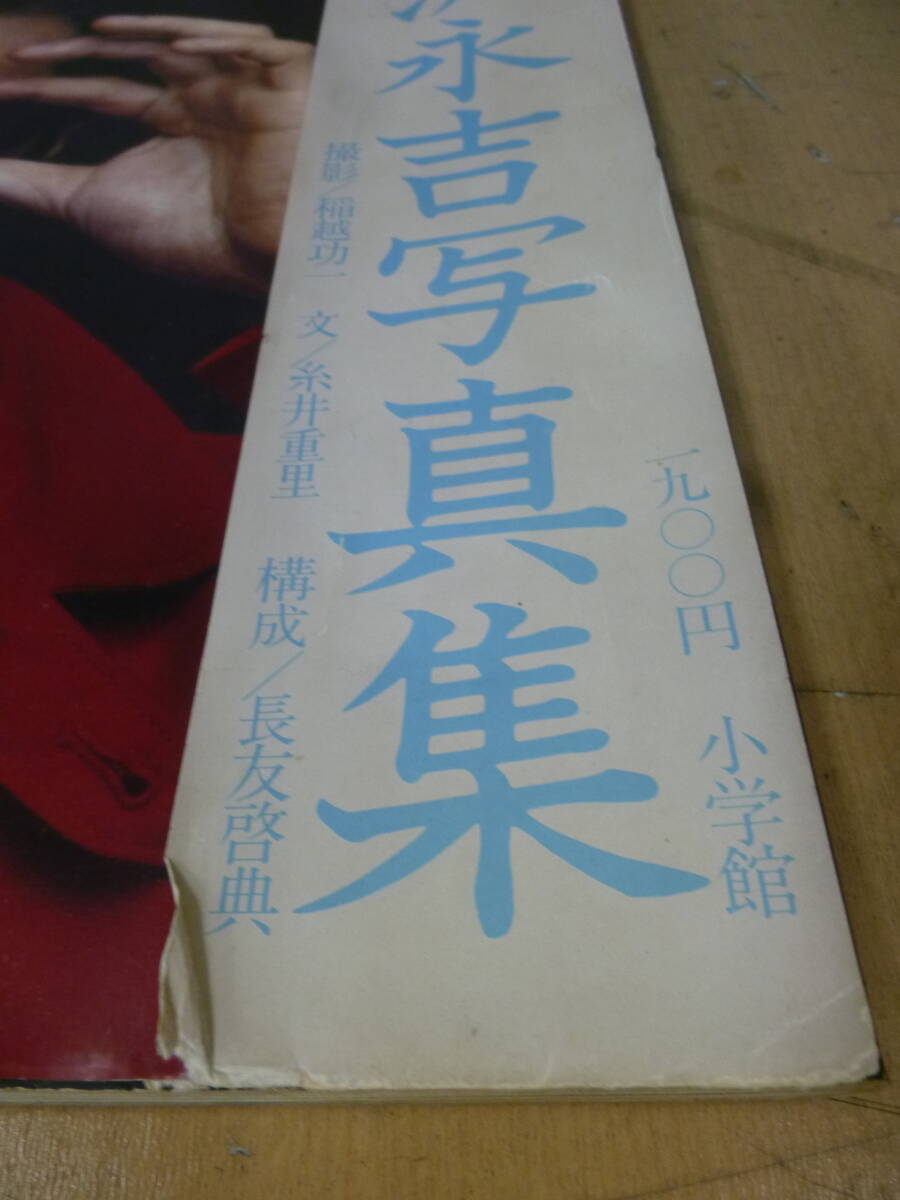 一九〇〇円 小学館
永吉写真集
撮影/稲越功一 文/糸井重里 構成/長友啓典